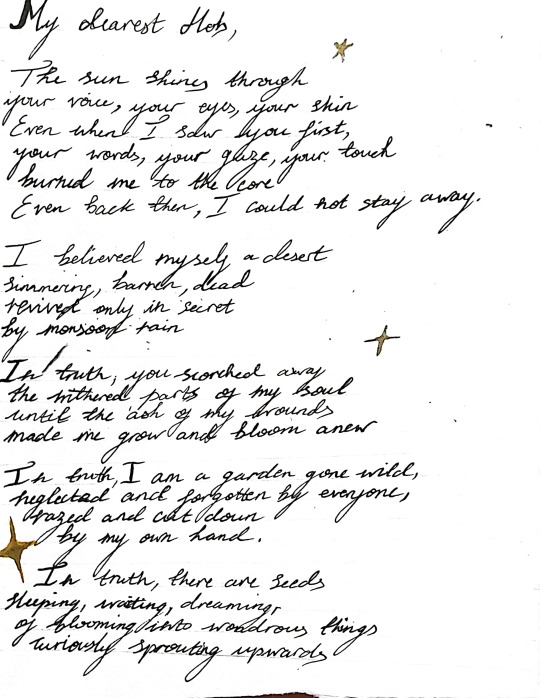 My dearest Hob,
The sun shines through
your voice, your eyes, your skin
Even when I saw you first,
your words, your gaze, your touch
burned me to the core
Even back then, I could not stay away.
I believed myself a desert
simmering, barren, dead
revived only in secret
by monsoon rain
In truth, you scorched away
the withered parts of my soul
until the ash of my wounds
made me grow and bloom anew
In truth, I am a garden gone wild,
neglected and forgotten by everyone,
razed and cut down
by my own hand.
In truth, there are seeds
sleeping, waiting, dreaming,
of blooming into wondrous things
curiously sprouting upwards